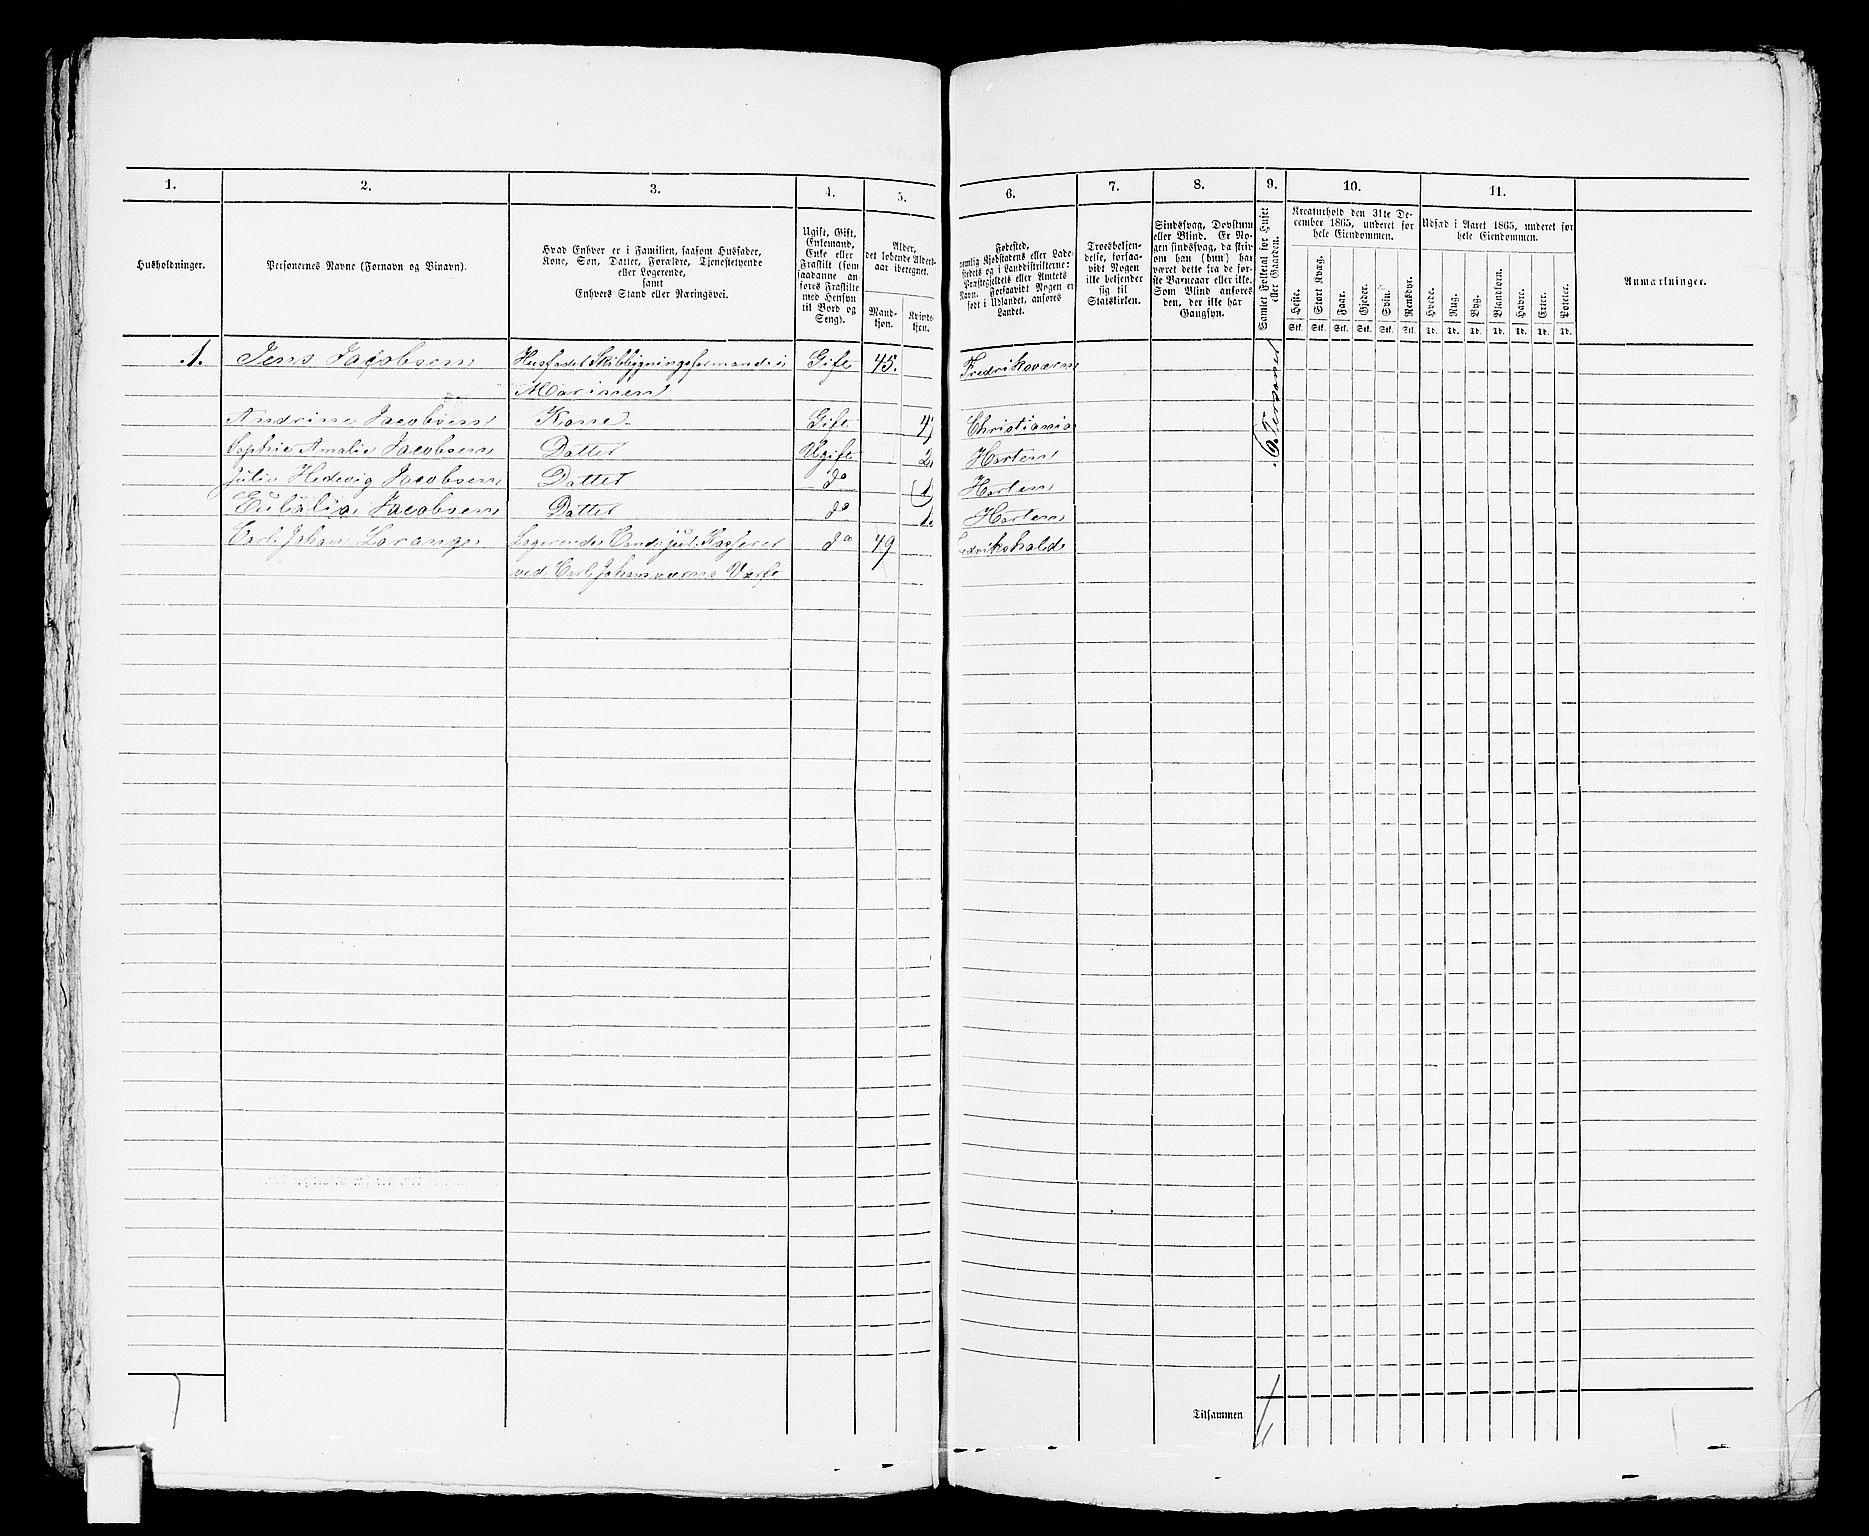 1. 2. 3. 4. 5. 6. 7. 8. 9. 10. 11.
Husholdninger.
Personernes Navne (Fornavn og Binavn).
Hvad Enhver er i Familien, saasom Husfader,
Kone, Søn, Datter, Forældre, Tjenestetyende
eller Logerende,
samt
Enhvers Stand eller Næringsvei.
Ugift, Gift,
Enkemand,
Enke eller
Fraskilt (som
saadanne an-
føres Fraskilte
med Hensyn
til Bord og
Seng).
Alder,
det løbende Alders-
aar iberegnet.
Mand-
kjøn.
Kvinde-
kjøn.
Fødested,
nemlig Kjøbstadens eller Lade-
stedets og i Landdistrikterne:
Præstegjeldets eller Amtets
Navn. Forsaavidt Nogen er
født i Udlandet, anføres
Landet.
Troesbekjen-
delse, forsaa-
vidt Nogen
ikke bekjender
sig til
Statskirken.
Sindssvag, Døvstum
eller Blind. Er No-
gen sindssvag, da skriv
om han (hun) har
været dette fra de før-
ste Barneaar eller ikke.
Som Blind anføres
den, der ikke har
Gangsyn.
Samlet Folketal for Huset
eller Gaarden.
Kreaturhold den 31te De-
cember 1865, underet for
hele Eiendommen.
Heste. Stort Kvæg. Faar. Gjeder. Svin. Rensdyr.
Stk. Stk. Stk. Stk. Stk. Stk.
Udsæd i Aaret 1865, underet for
hele Eiendommen.
Hvede. Rug. Byg. Blandkorn. Havre. Erter. Poteter.
Td. Td. Td. Td. Td. Td. Td.
Anmærkninger.
1. Jens Jacobsen Husfader Skibbygningsformand i Gift 45. Fredriksværn
Marinen
Andrine Jacobsen Kone Gift Christiania
Sophie Amalie Jacobsen Datter Ugift Horten
Julie Hedevig Jacobsen Datter do Horten
Eulalia Jacobsen Datter do Horten
Carl Johan Lorange Logerende Cand. jur. Kasserer do 49 Fredrikshald
ved Carl Johansværns Værft
6 Personer
Tilsammen